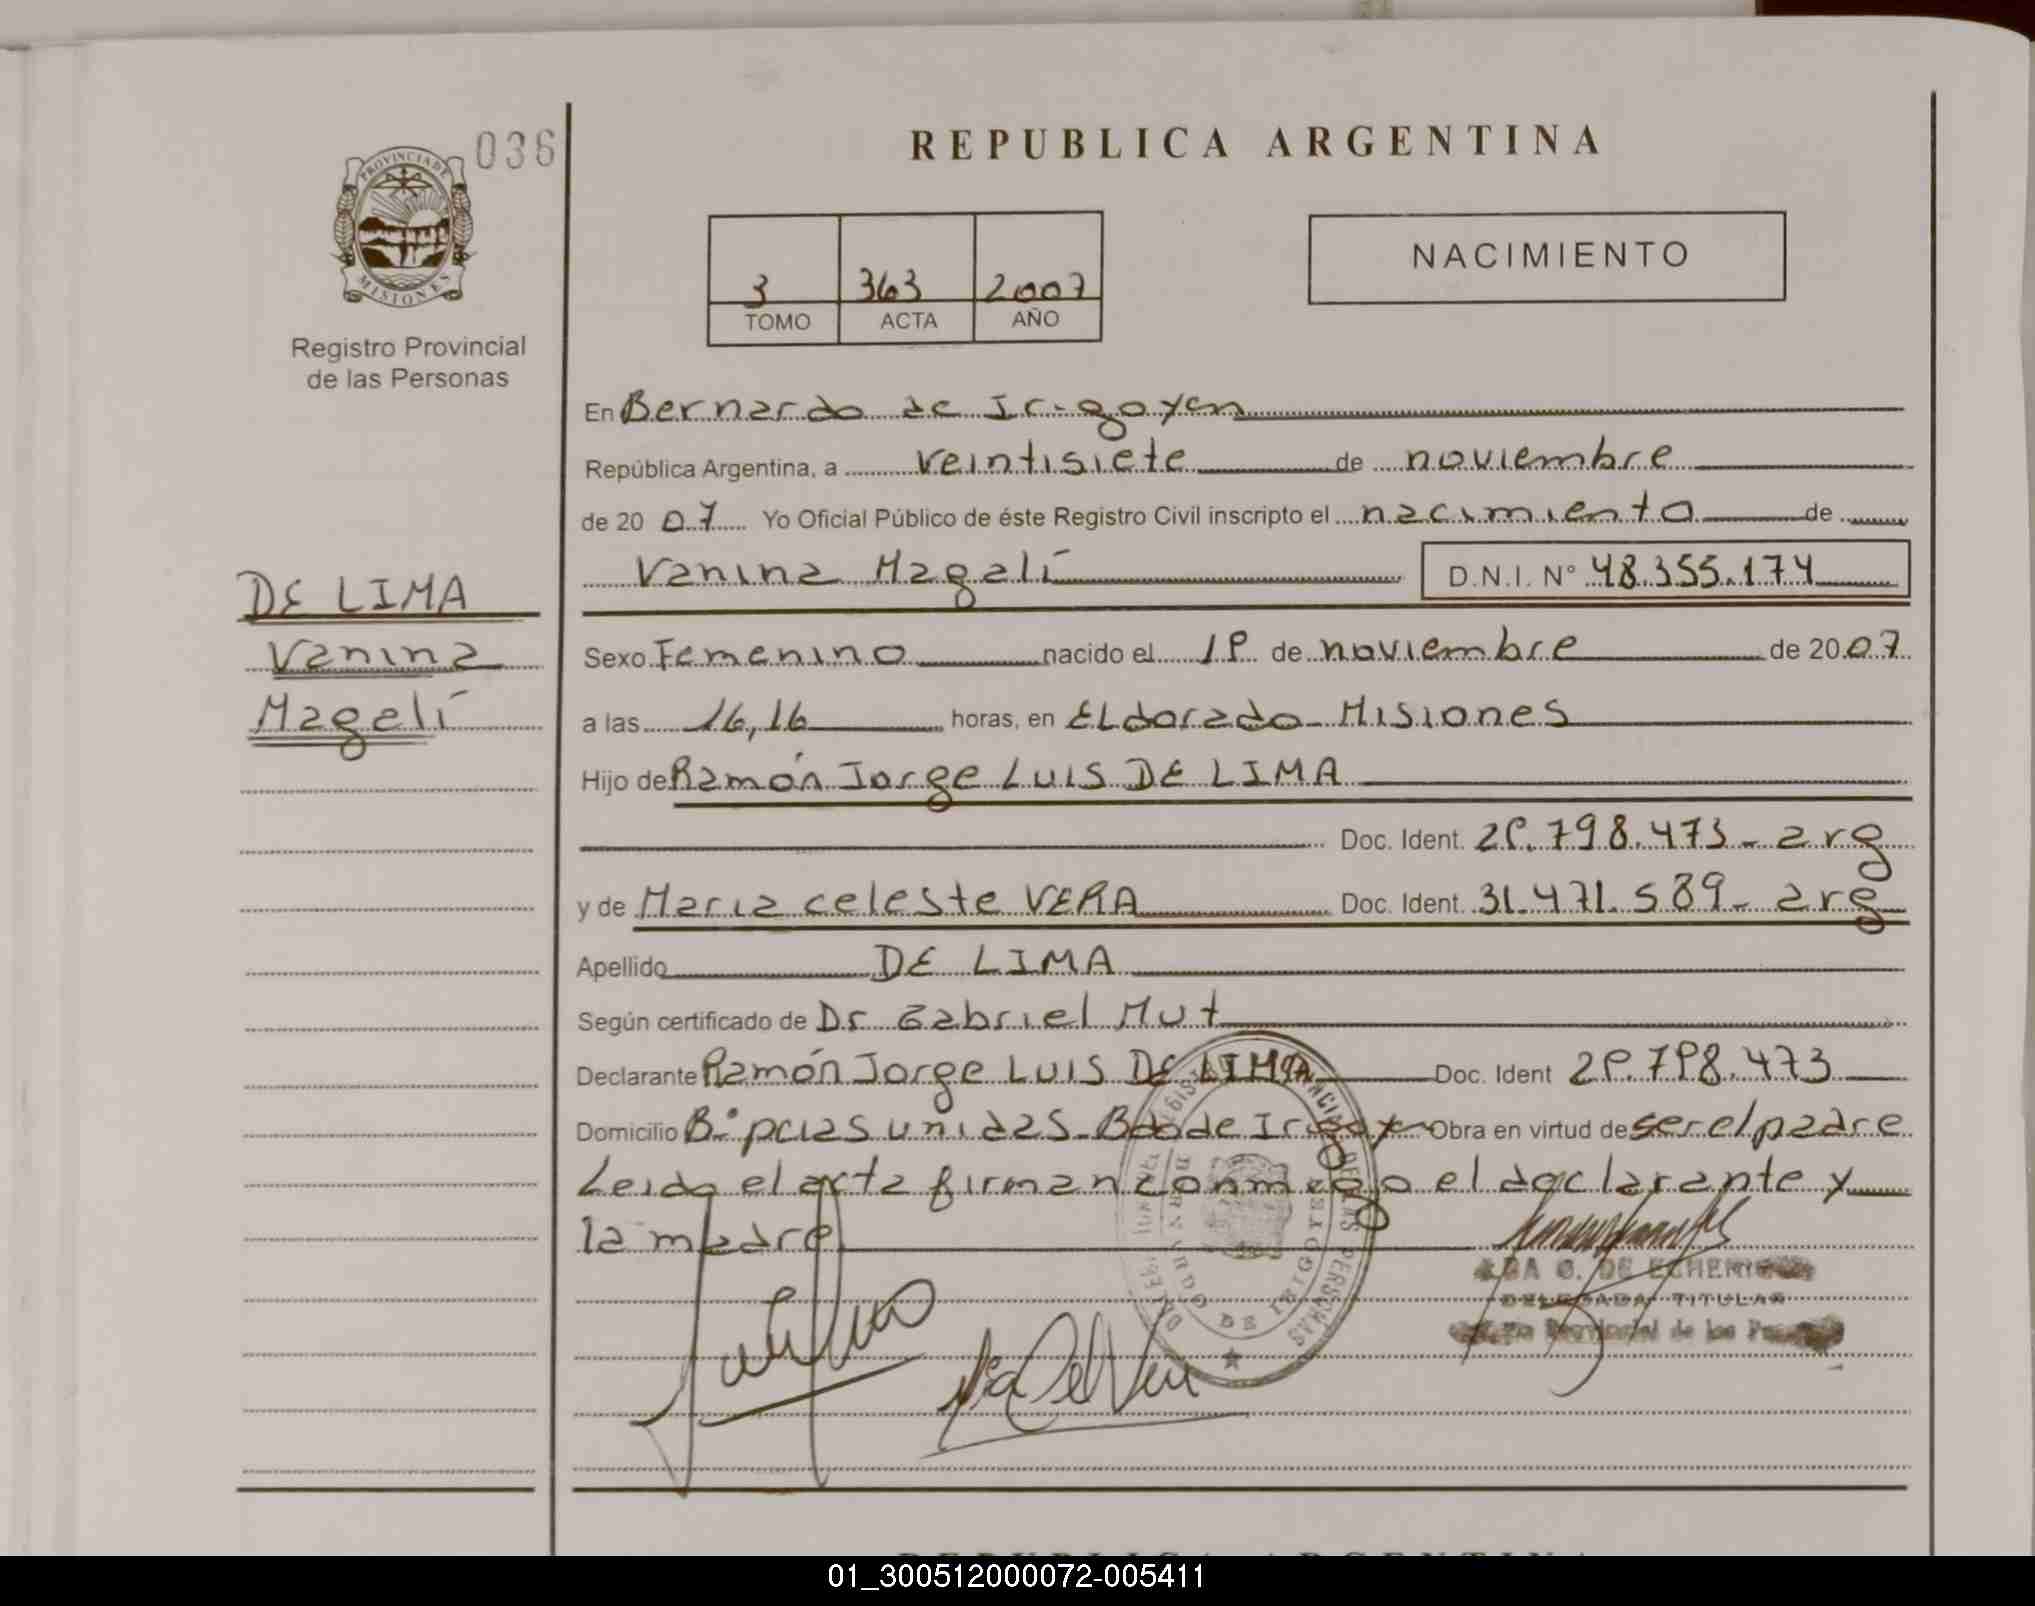 036
REPUBLICA ARGENTINA
PROVINCIA DE
MISIONES
Registro Provincial
de las Personas
3 363 2007
TOMO ACTA AÑO
NACIMIENTO
En Bernardo de Irigoyen
República Argentina, a veintisiete de noviembre
de 20 07 Yo Oficial Público de éste Registro Civil inscripto el nacimiento de
Vanina Magalí D.N.I. Nº 48.355.174
DE LIMA
Vanina
Magalí
Sexo Femenino nacido el 19 de noviembre de 20 07
a las 16,16 horas, en Eldorado Misiones
Hijo de Ramón Jorge Luis DE LIMA
Doc. Ident. 29.798.473 - arg
y de Maria celeste VERA Doc. Ident. 31.471.589 - arg
Apellido DE LIMA
Según certificado de Dr Gabriel Mut
Declarante Ramón Jorge Luis DE LIMA Doc. Ident 29.798.473
Domicilio Bº paias unidas Bdo de Irigoy Obra en virtud de ser el padre
Leida el acta firman conmigo el daclarante y
la madre
DE ECHENI
DELEGADA TITULAR
Provincial de las
01_300512000072-005411